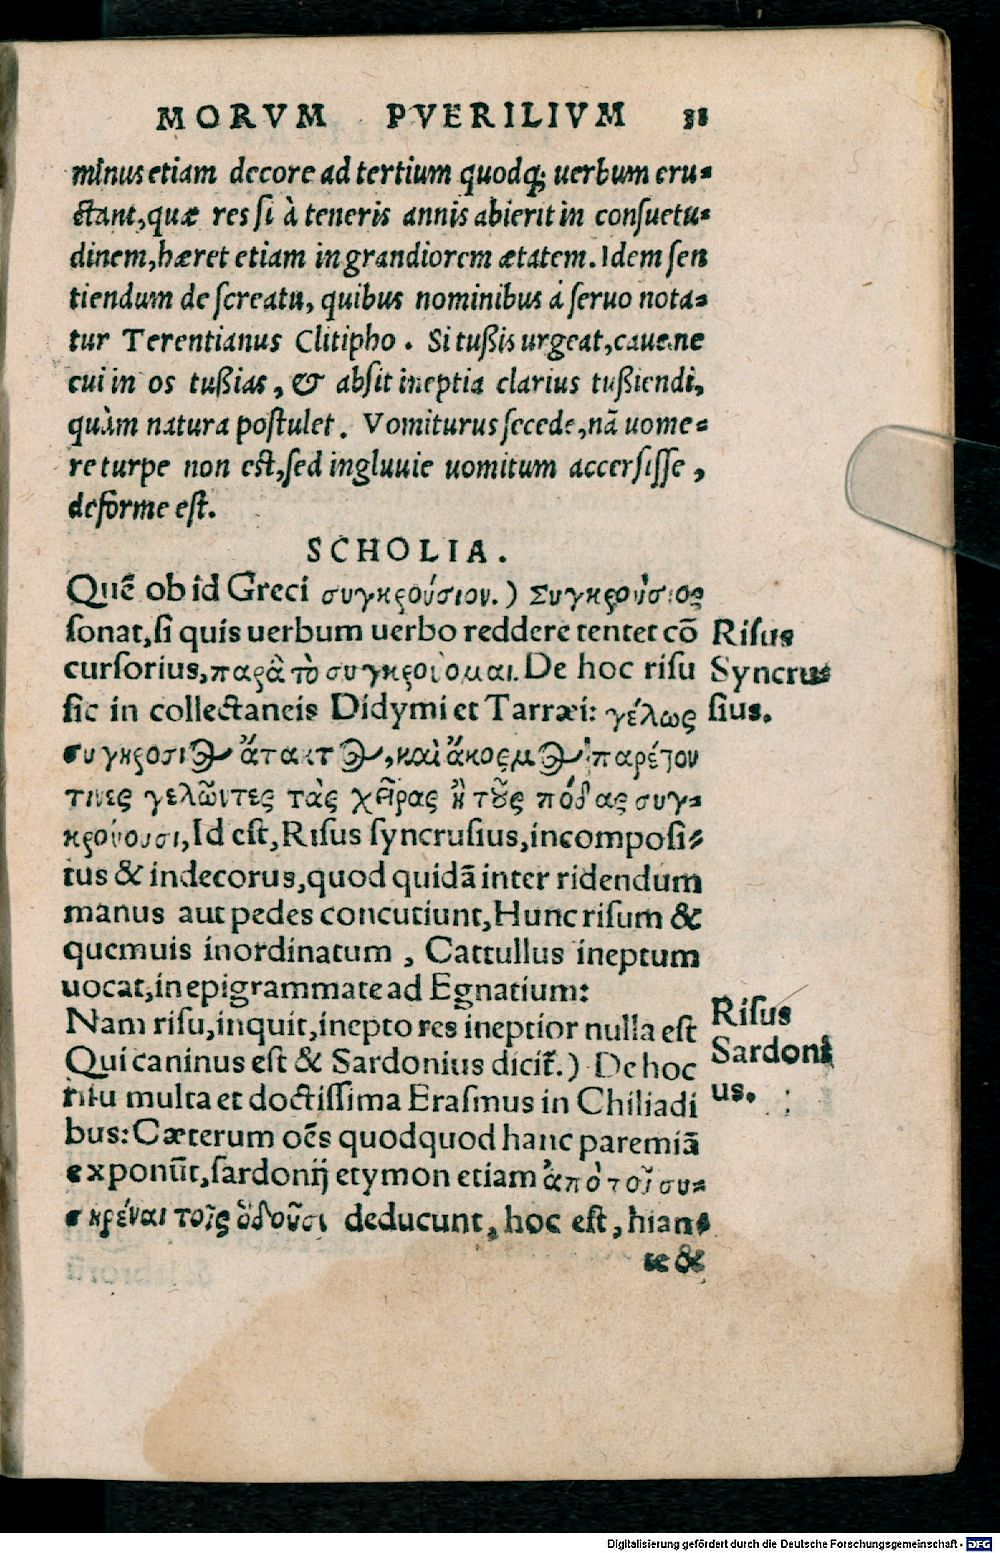 MORVM PVERILIVM 31
minus etiam decore ad tertium quodq; uerbum eru-
ctant, quæ res si à teneris annis abierit in consuetu-
dinem, hæret etiam in grandiorem ætatem. Idem sen
tiendum de screatu, quibus nominibus á seruo nota-
tur Terentianus Clitipho. Si tußis urgeat, caue ne
cui in os tußias, & absit ineptia clarius tußiendi,
quàm natura postulet. Vomiturus secede, nã uome-
re turpe non est, sed ingluuie uomitum accersisse,
deforme est.
SCHOLIA.
Quẽ ob id Greci συγκρούσιον.) Συγκρούσιος
sonat, si quis uerbum uerbo reddere tentet cõ
cursorius, παρὰ τὸ συγκρούομαι. De hoc risu
sic in collectaneis Didymi et Tarræi: γέλως
συγκρόσιος ἄτακτος, καὶ ἄκοσμος παρέσον
τινες γελῶντες τὰς χεῖρας ἢ τοὺς πόδας συγ-
κρούουσι, Id est, Risus syncrusius, incomposi-
tus & indecorus, quod quidã inter ridendum
manus aut pedes concutiunt, Hunc risum &
quemuis inordinatum, Cattullus ineptum
uocat, in epigrammate ad Egnatium:
Nam risu, inquit, inepto res ineptior nulla est
Qui caninus est & Sardonius dicit̃.) De hoc
ritu multa et doctissima Erasmus in Chiliadi
bus: Cæterum oẽs quodquod hanc paremiã
exponũt, sardonij etymon etiam ἀπὸ τοῦ συ-
σκρέναι τοῖς ὀδοῦσι deducunt, hoc est, hian-
te &
Risus
Syncru-
sius.
Risus
Sardoni
us.
Digitalisierung gefördert durch die Deutsche Forschungsgemeinschaft - DFG